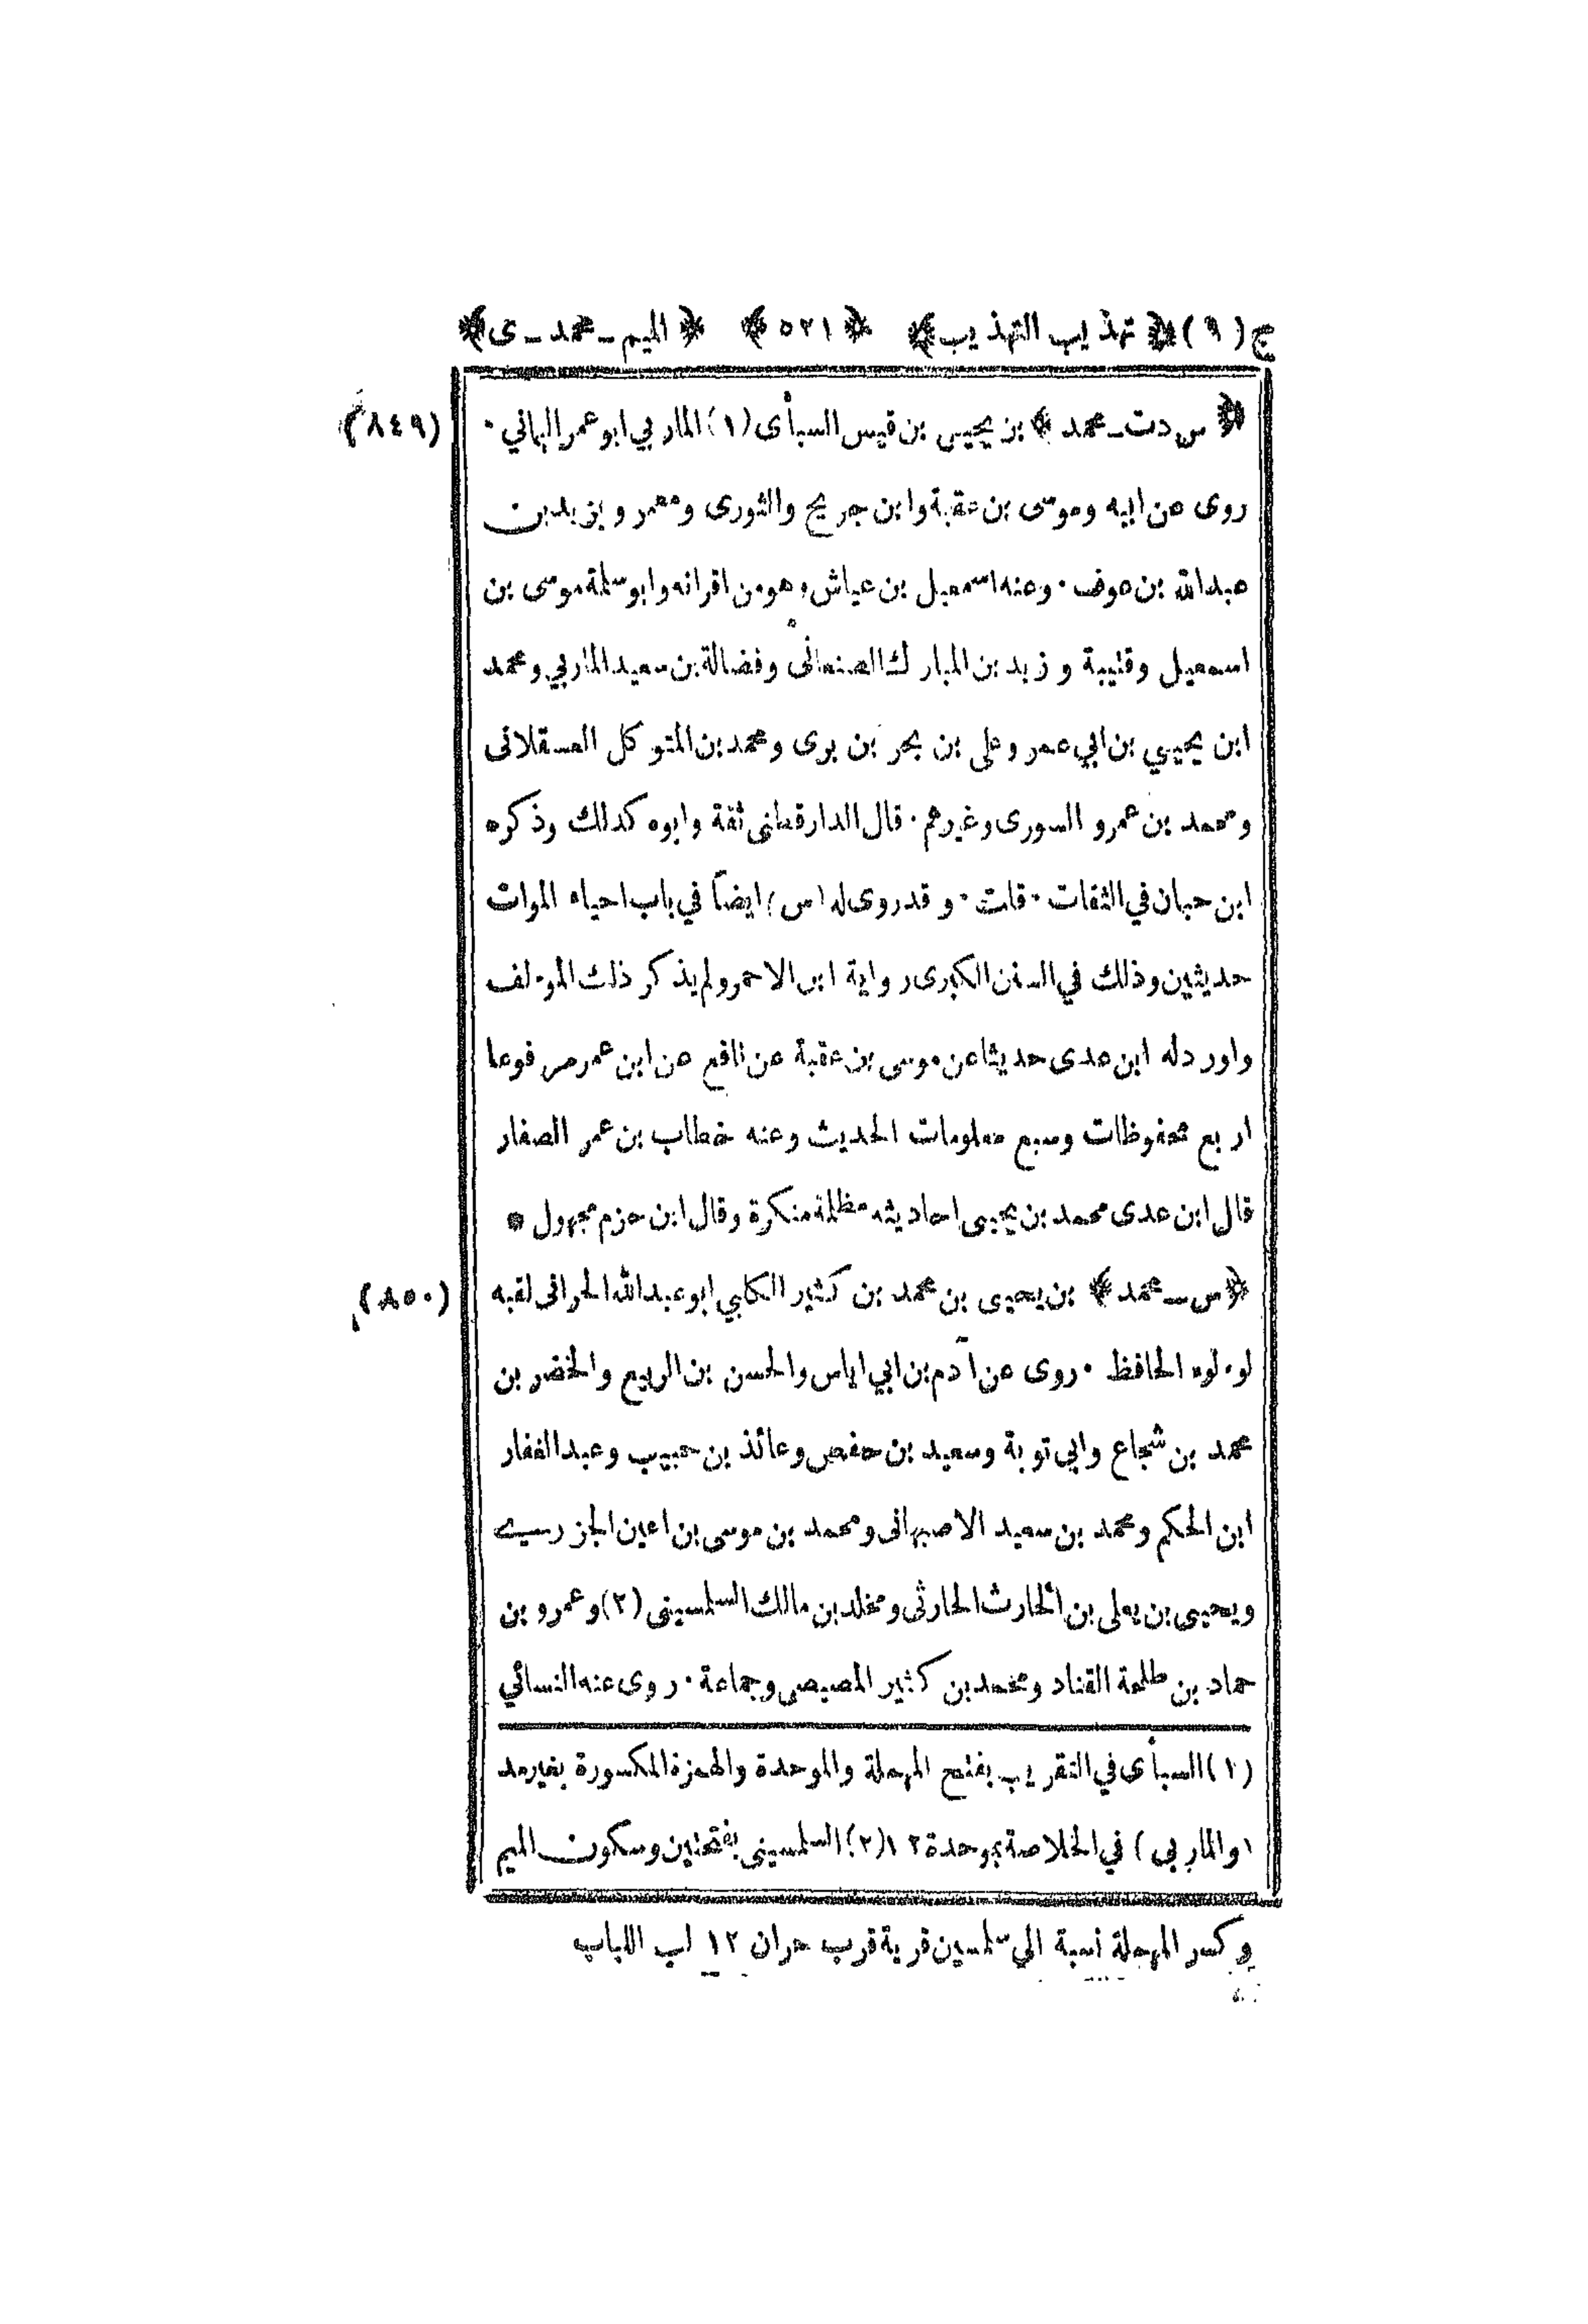 ج (٩) ﴿ تهذيب التهذيب ﴾ ﴿ ٥٢١ ﴾ ﴿ الميم ـ محمد ـ ى ﴾
﴿ س دت ـ محمد ﴾ بن يحيى بن قيس السبأى (١) الماربي ابو عمر اليماني · (٨٤٩)
روى عن ابيه وموسى بن عقبة وابن جريج والثورى ومعمر ويزيد بن
عبدالله بن عوف · وعنه اسمعيل بن عياش وهو من اقرانه وابو سلمة موسى بن
اسمعيل وقتيبة وزيد بن المبارك الصنعانى وفضالة بن سعيد الماربي ومحمد
ابن يحيى بن ابي عمر وعلى بن بحر بن برى ومحمد بن المتوكل العسقلانى
ومحمد بن عمرو السورى وغيرهم · قال الدارقطنى ثقة وابوه كذلك وذكره
ابن حبان في الثقات · قلت · وقد روى له (س) ايضاً في باب احياء الموات
حديثين وذلك في السنن الكبرى رواية ابن الاحمر ولم يذكر ذلك المؤلف
واورد له ابن عدى حديثا عن موسى بن عقبة عن نافع عن ابن عمر مرفوعا
اربع محفوظات وسبع معلومات الحديث وعنه خطاب بن عمر الصفار
قال ابن عدى محمد بن يحيى احاديثه مظلمة منكرة وقال ابن حزم مجهول *
﴿ س ـ محمد ﴾ بن يحيى بن محمد بن كثير الكلبي ابو عبدالله الحرانى لقبه (٨٥٠)
لؤلؤه الحافظ · روى عن آدم بن ابي اياس والحسن بن الربيع والخضر بن
محمد بن شجاع وابي توبة وسعيد بن حفص وعائذ بن حبيب وعبدالغفار
ابن الحكم ومحمد بن سعيد الاصبهانى ومحمد بن موسى بن اعين الجزرسي
ويحيى بن يعلى بن الحارث الحارثى ومخلد بن مالك السلمسينى (٢) وعمرو بن
حماد بن طلحة القناد ومحمد بن كثير المصيصى وجماعة · روى عنه النسائي
(١) السبأى في التقريب بفتح المهملة والموحدة والهمزة المكسورة بغير مد
(والماربي) في الخلاصة بموحدة ١٢ (٢) السلمسينى بفتحتين وسكون الميم
وكسر المهملة نسبة الى سلمسين قرية قرب حران ١٢ لب اللباب